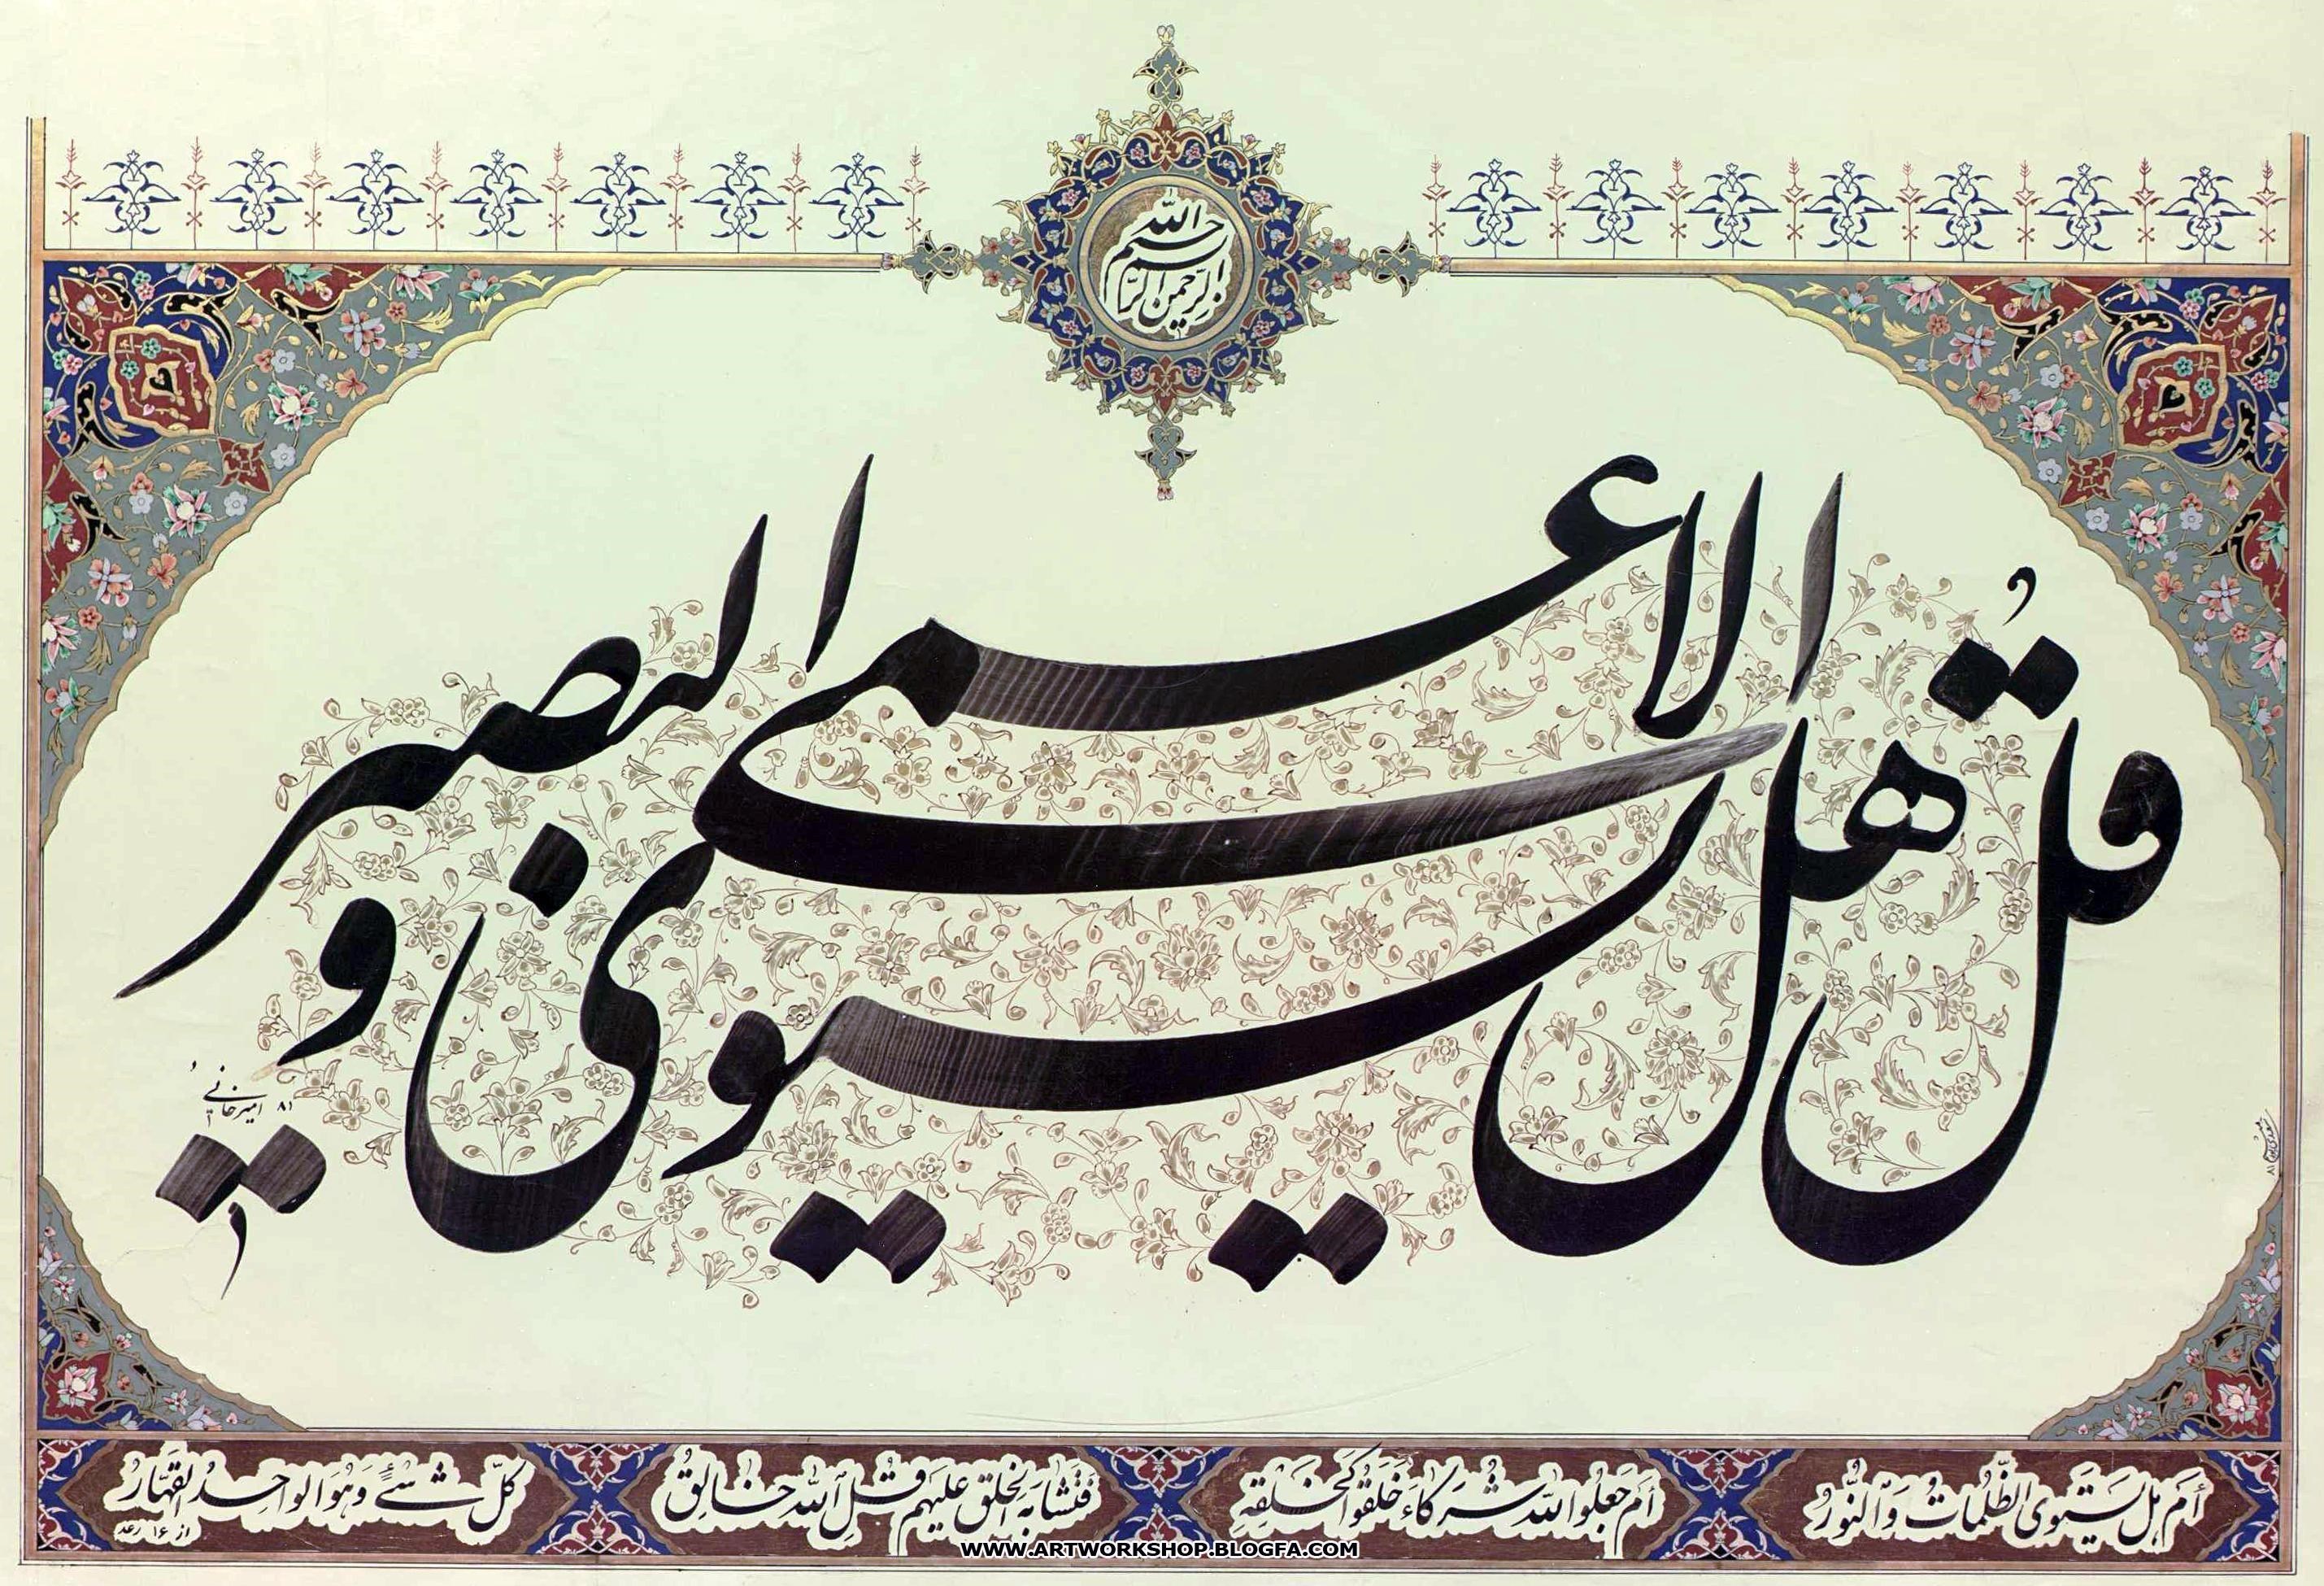 بسم الله
الرحمن الرحیم
قُل هل یستوی الاعمی والبصیر
امیرخانی ۸۱
أم هل یستوی الظّلمات وَالنّورُ
أم جَعلوا لله شُرکاءَ خَلَقوا کَخَلقِهِ
فَتَشابَهَ الخلق عَلیهم قُلِ الله خالِقُ
کلّ شیءٍ وَهُوَ الواحِدُ القَهّارُ
از ۱۶ رعد
WWW.ARTWORKSHOP.BLOGFA.COM